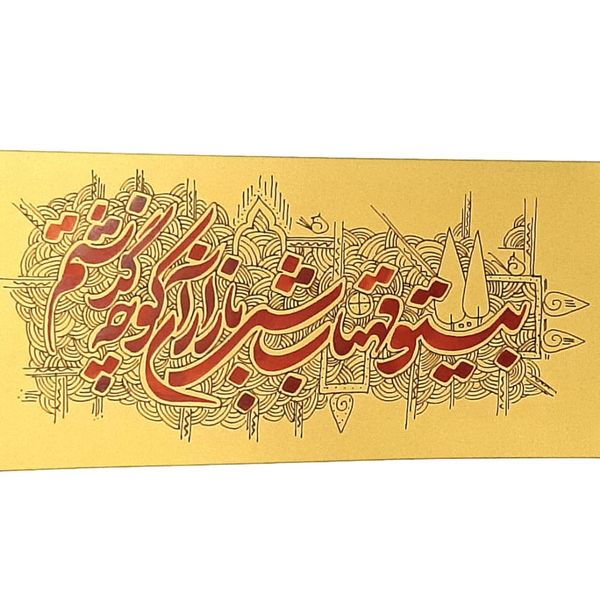 بی تو مهتاب شبی باز از آن کوچه گذشتم